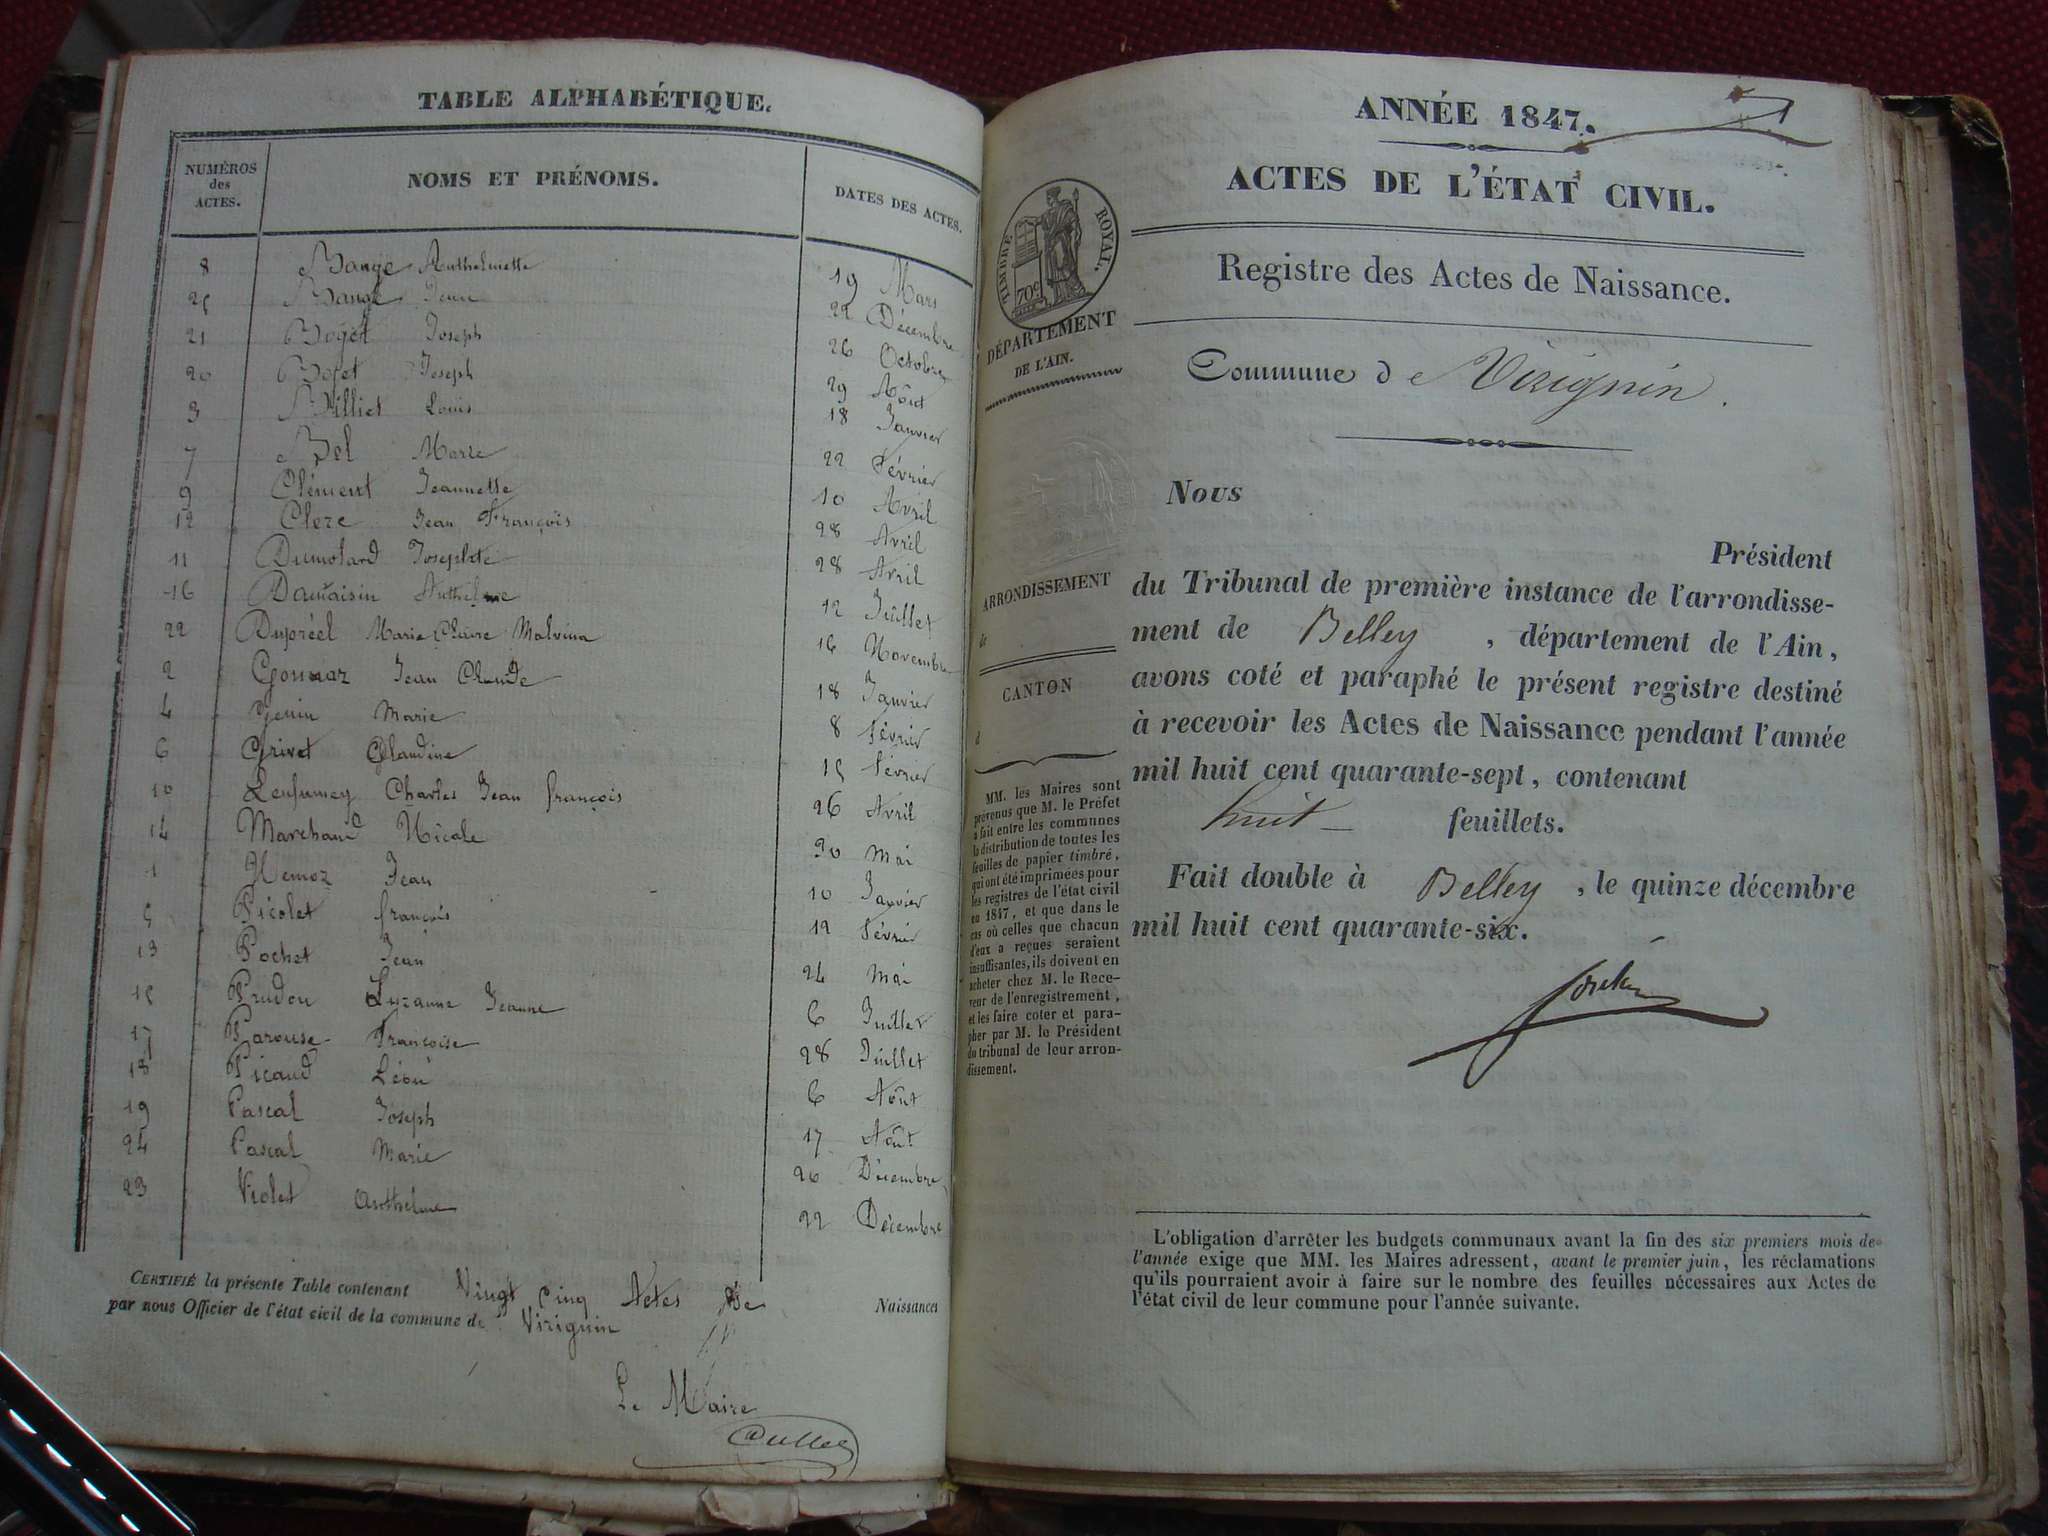 TABLE ALPHABÉTIQUE.
NUMÉROS des ACTES. NOMS ET PRÉNOMS. DATES DES ACTES.
8 Bange Anthelmette 19 Mars
25 Bange Jean 22 Décembre
21 Bojet Joseph 26 Octobre
20 Bojet Joseph 29 Aôut
3 Billiet Louis 18 Janvier
7 Bel Marie 22 février
9 Clément Jeannette 10 Avril
12 Clerc Jean François 28 Avril
11 Dumolard Josephte 28 Avril
16 Damaisin Anthelme 12 Juillet
22 Dupréel Marie Claire Malvina 16 Novembre
2 Gonnaz Jean Claude 18 Janvier
4 Genin Marie 8 février
6 Grivet Claudine 15 février
10 Lenfumey Charles Jean françois 26 Avril
14 Marchand Nicole 30 Mai
1 Nemoz Jean 10 Janvier
5 Picolet françois 12 février
13 Pochet Jean 24 Mai
15 Prudon Suzanne Jeanne 6 Juillet
17 Parouse Françoise 28 Juillet
18 Picaud Léon 6 Aôut
19 Pascal Joseph 17 Aôut
24 Pascal Marie 20 Décembre
23 Violet Anthelme 22 Décembre
CERTIFIÉ la présente Table contenant Vingt cinq Actes de Naissances
par nous Officier de l'état civil de la commune de Virignin
Le Maire
ANNÉE 1847.
ACTES DE L'ÉTAT CIVIL.
Registre des Actes de Naissance.
Commune de Virignin.
TIMBRE ROYAL.
70c
DÉPARTEMENT
DE L'AIN.
ARRONDISSEMENT
de
CANTON
d
MM. les Maires sont
prévenus que M. le Préfet
a fait entre les communes
la distribution de toutes les
feuilles de papier timbré,
qui ont été imprimées pour
les registres de l'état civil
en 1847, et que dans le
cas où celles que chacun
d'eux a reçues seraient
insuffisantes, ils doivent en
acheter chez M. le Rece-
veur de l'enregistrement,
et les faire coter et para-
pher par M. le Président
du tribunal de leur arron-
dissement.
Nous
Président
du Tribunal de première instance de l'arrondisse-
ment de Belley, département de l'Ain,
avons coté et paraphé le présent registre destiné
à recevoir les Actes de Naissance pendant l'année
mil huit cent quarante-sept, contenant
huit feuillets.
Fait double à Belley, le quinze décembre
mil huit cent quarante-six.
L'obligation d'arrêter les budgets communaux avant la fin des six premiers mois de
l'année exige que MM. les Maires adressent, avant le premier juin, les réclamations
qu'ils pourraient avoir à faire sur le nombre des feuilles nécessaires aux Actes de
l'état civil de leur commune pour l'année suivante.